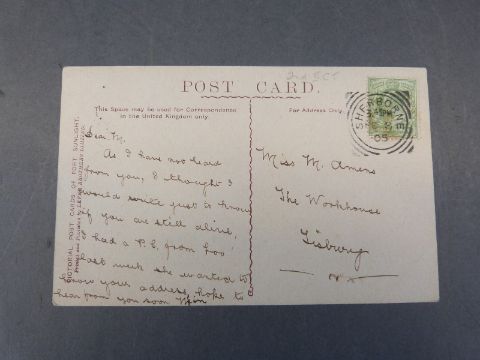 POST CARD.
This Space may be used for Correspondence
in the United Kingdom only.
For Address Only.
PICTORIAL POST CARDS OF PORT SUNLIGHT.
SHERBORNE
05
Dear M.
As I have not heard
from you, I thought I
would write just to know
if you are still alive,
I had a P.C. from
last week she wanted to
know your address, hope to
hear from you soon
Miss M. Amens
The Workhouse
Tisbury